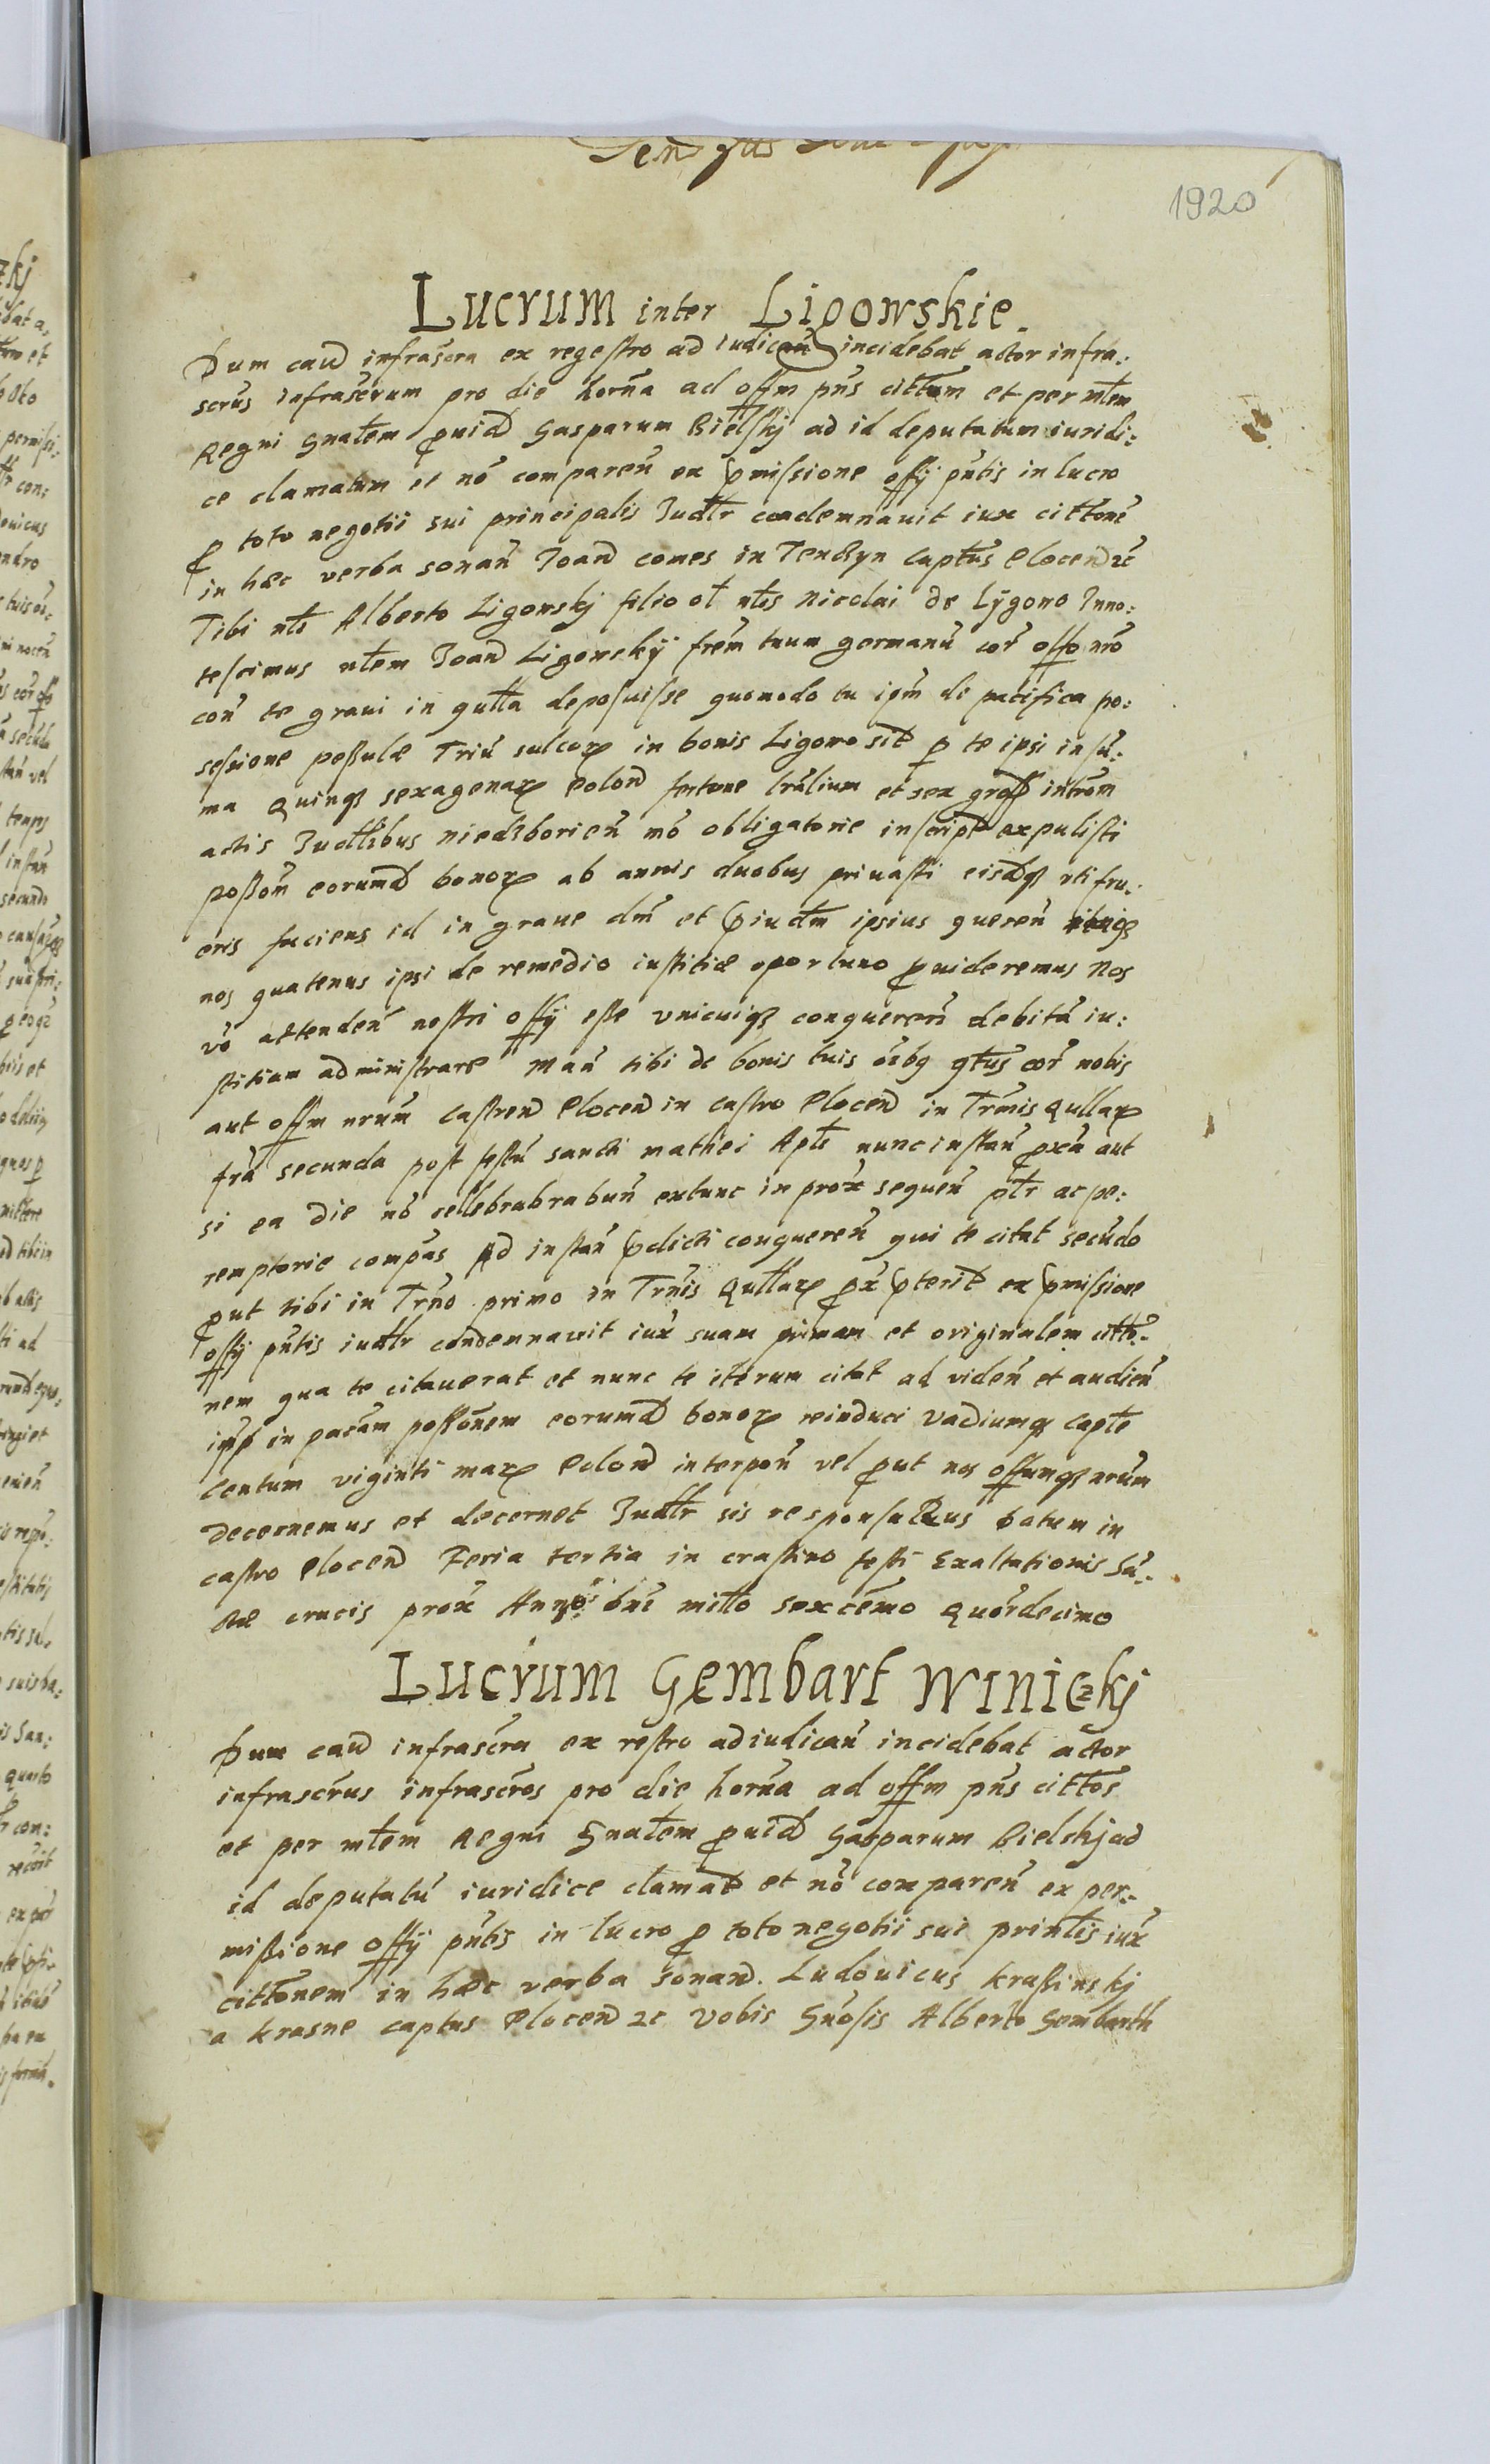 1920
Lucrum inter Ligowskie.
Dum caus̄ infrascra ex regestro ad iudican̄ incidebat actor infra:
scrūs infrascrum pro die horna ad offm pn̄s cittum et per mtem
Regni gnałem ꝓuid Gasparum Bielskj ad id deputatum iuridi:
ce clamatum et nō comparen̄ ex pmissione offÿ pn̄tis in lucro
ꝓ toto negotii sui principalis Judtr condemnauit iux cittonē
in hæc verba sonan̄ Joan̄ comes in Tenczyn Captus Plocen̄ zc̄
Tibi nłi Alberto Ligowskj filio oł nłis Nicolai de Lÿgowo Inno:
tescimus nłem Joan̄ Ligowskÿ frēm tuum germanū cor̄ offo nrō
con̄ te graui in qulla deposuisse quomodo tu ipm̄ de pacifica po:
sessione possulæ Triū sulcorꝝ in bonis Ligowo sit̄ ꝑ te ipsi in sū:
ma Quinqꝫ sexagenarꝝ Polon̄ fortune lrālium et sex gross intrōm
actis Judłibus Niedzborien̄ mō obligatorie inscript expulisti
posson̄ eorumd bonorꝝ ab annis duobus priuasti eisdqꝫ uti fru:
eris faciens id in graue dm̄ et pṙiudm ipsius queren̄
nos quatenus ipsi de remedio iustitiæ oportuno ꝓuideremus Nos
vō attenden̄ nostri offÿ esse vnicuiqꝫ conqueren̄ debitā iu:
stitiam administrare Man̄ tibi de bonis tuis oībꝫ qtus cor̄ nobis
aut offm nrum Castren̄ Plocen̄ in castro Plocen̄ in Trmis Qullarꝝ
fria secunda post festū sancti mathei Apłi nunc instan̄ ꝓxā aut
si ea die nō cellebrabrabun̄ extunc in prox̄ sequen̄ ptr ac pe:
remptorie compās Ad instan̄ pdicti conqueren̄ qui te citat secūdo
ꝓut tibi in Trn̄o primo in Trn̄is Qullarꝝ ꝓx̄ pterit̄ ex pmissione
offÿ pn̄tis iudłr condemnauit iux̄ suam primam et originalem citto:
nem qua te citauerat et nunc te iterum citat ad viden̄ et audien̄
ipsū in pacām possōnem eorumd bonorꝝ reinduci Vadiumqꝫ Capłe
Centum viginti marꝝ Polon̄ interpon̄ vel ꝓut nos offumqꝫ nrūm
decernemus et decernet Judłr sis responsurus Datum in
castro Plocen̄ Feria tertia in crastino festi Exaltationis Sā:
ctæ crucis prox̄ Anno dnī mitło sexcēmo Quōrdecimo
Lucrum Gembart Winiczkj
Dum caus̄ infrascra ex restro adiudican̄ incidebat actor
infrascrūs infrascrōs pro die horna ad offm pn̄s cittos
et per mtem Regni Gnałem ꝓuid Gasparum Bielskj ad
id deputatū iuridice clamat̄ et nō comparen̄ ex per:
missione offÿ pn̄tis in lucro ꝓ toto negotii sui printis iux̄
cittonem in hæc verba sonan̄. Ludouicus Krassinskj
a Krasne captus Plocen̄ zc Vobis Gnōsis Alberto Gembarth